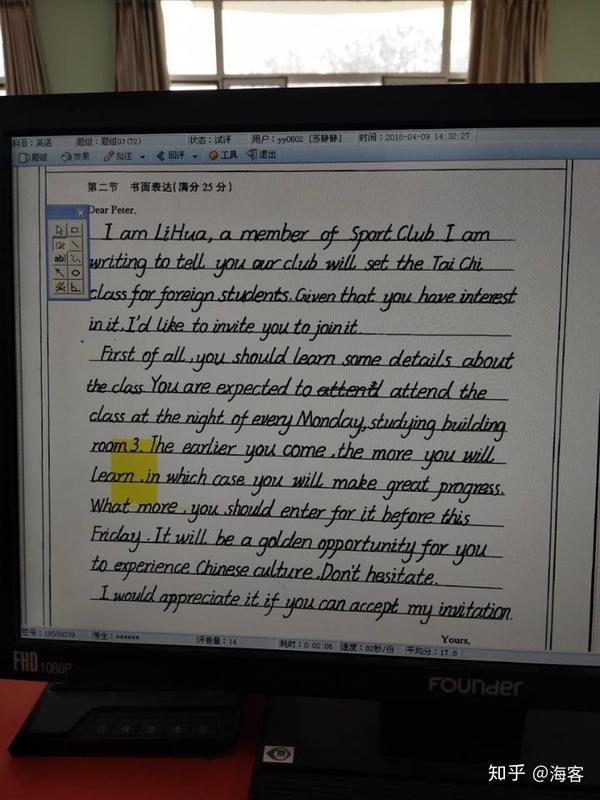 科目：英语 题组：题组03(72) 状态：试评 用户：yy0602 [苏静静] 时间：2018-04-09 14:32:27
题组 效果 批注 回评 工具 退出
第二节 书面表达(满分 25 分)
Dear Peter,
I am LiHua, a member of Sport Club. I am
writing to tell you our club will set the Tai Chi
class for foreign students. Given that you have interest
in it, I'd like to invite you to join it.
First of all, you should learn some details about
the class. You are expected to attend the
class at the night of every Monday, studying building
room 3. The earlier you come, the more you will
learn, in which case you will make great progress.
What more, you should enter for it before this
Friday. It will be a golden opportunity for you
to experience Chinese culture. Don't hesitate.
I would appreciate it if you can accept my invitation.
Yours,
考生：****** 评卷量：14 耗时：0:02:06 速度：82秒/份 平均分：17.6
FHD 1080P
FOUNDER
知乎 @海客